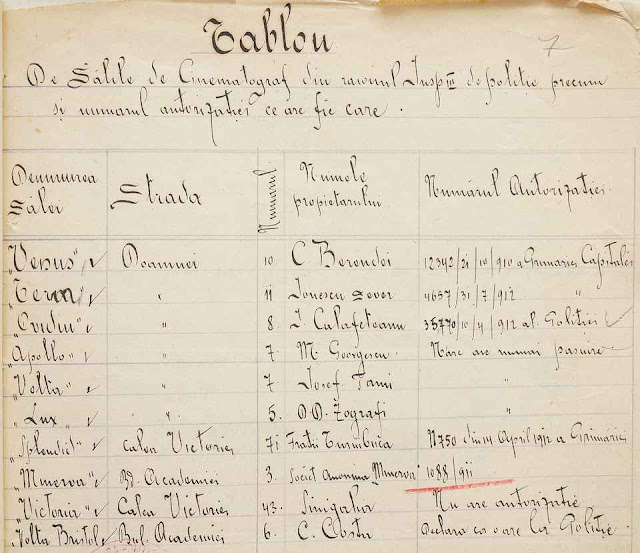 Tablou
7
De Sălile de Cinematograf din raionul Insp III de poliție precum
și numărul autorizației ce are fie care.
Denumirea Sălei | Strada | Numărul | Numele proprietarului | Numărul Autorizației
"Venus" | Doamnei | 10 | C. Berendei | 12342/21/10/910 a Primăriei Capitalei
"Terra" | " | 11 | Ionescu Sover | 4657/31/7/912 "
"Ovidiu" | " | 8. | I. Calafeteanu | 35770/10/4/912 al Poliției
"Apollo" | " | 7. | M. Georgescu | N'are are numai pasuire
"Volta" | " | 7 | Iosef Fani | "
"Lux" | " | 5. | D.D. Zografi | "
"Splendid" | calea Victoriei | 71 | Frații | N750 din 14 April 1912 a Primăriei
"Minerva" | Bd. Academiei | 3. | Societ Anonima "Minerva" | 1088/911
"Victoria" | Calea Victoriei | 43. | Sinigalia | Nu are autorizație
"Volta Bristol" | Bul. Academiei | 6 | C. Costa | Declara că o are la Poliție